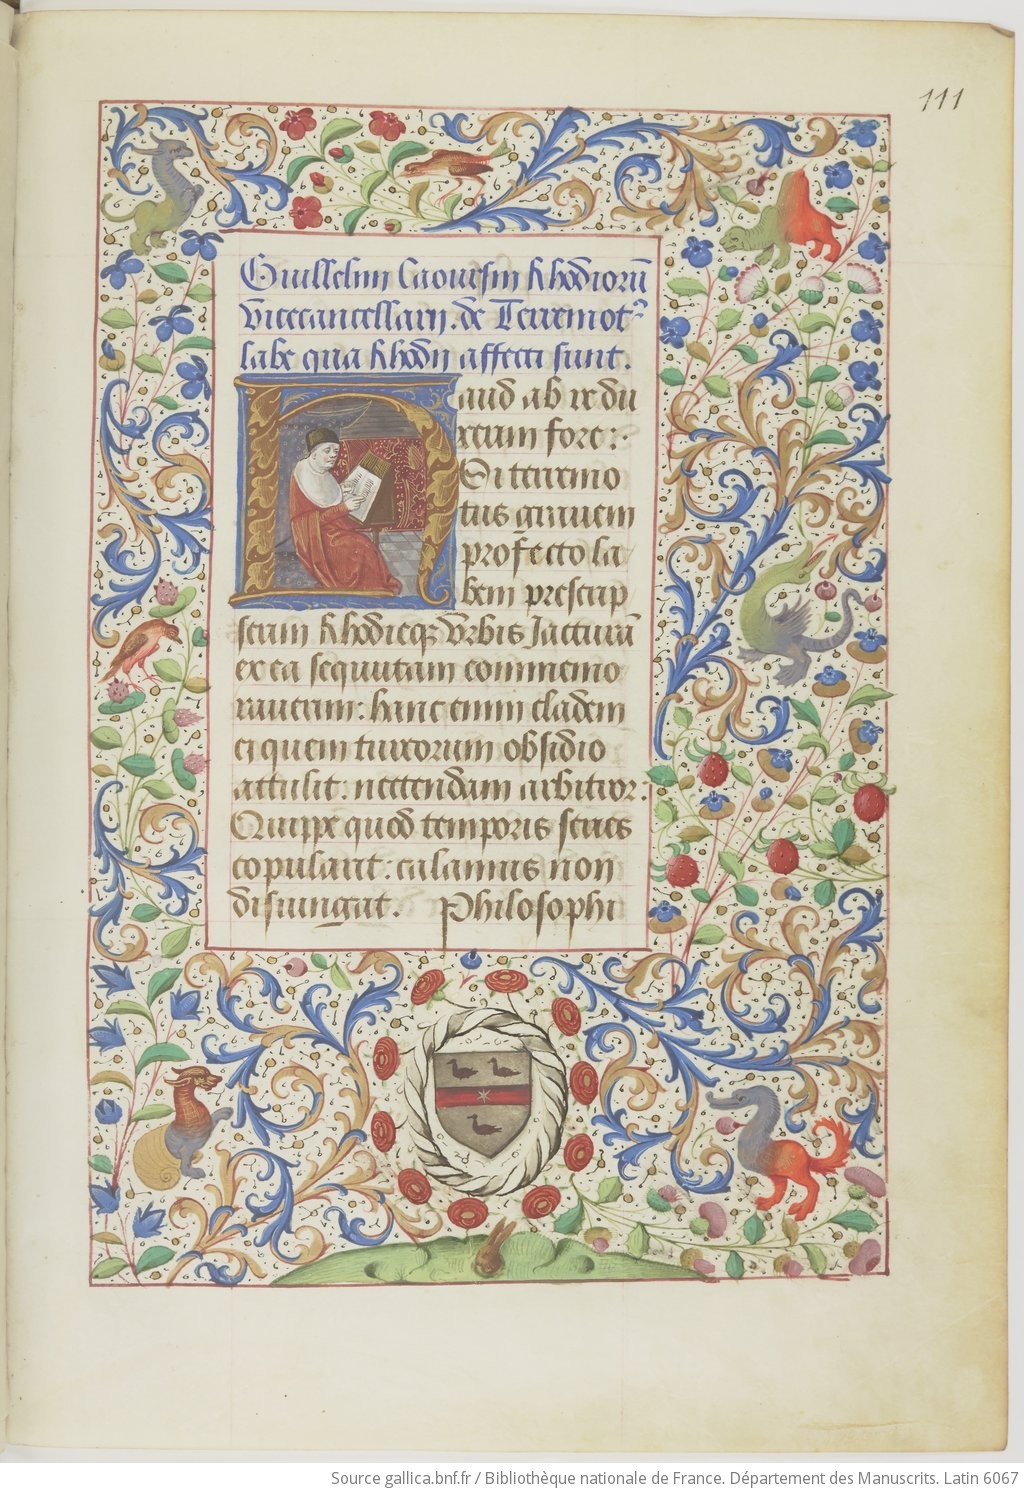 111
Guillelmi Caoursin Rhodiorū
vicecancellarij. de Terremotꝰ
labe qua Rhodij affecti sunt.
Haud ab re du
xerim fore:
Si terremo
tus grauem
profecto la
bem prescrip
serim Rhodieqꝫ Vrbis Jacturā
ex ea sequutam commemo
rauerim: hanc enim cladem
ei quem turcorum obsidio
attulit: nectendam arbitror:
Quippe quod temporis series
copulant: calamus non
disiungat. Philosophi
Source gallica.bnf.fr / Bibliothèque nationale de France. Département des Manuscrits. Latin 6067